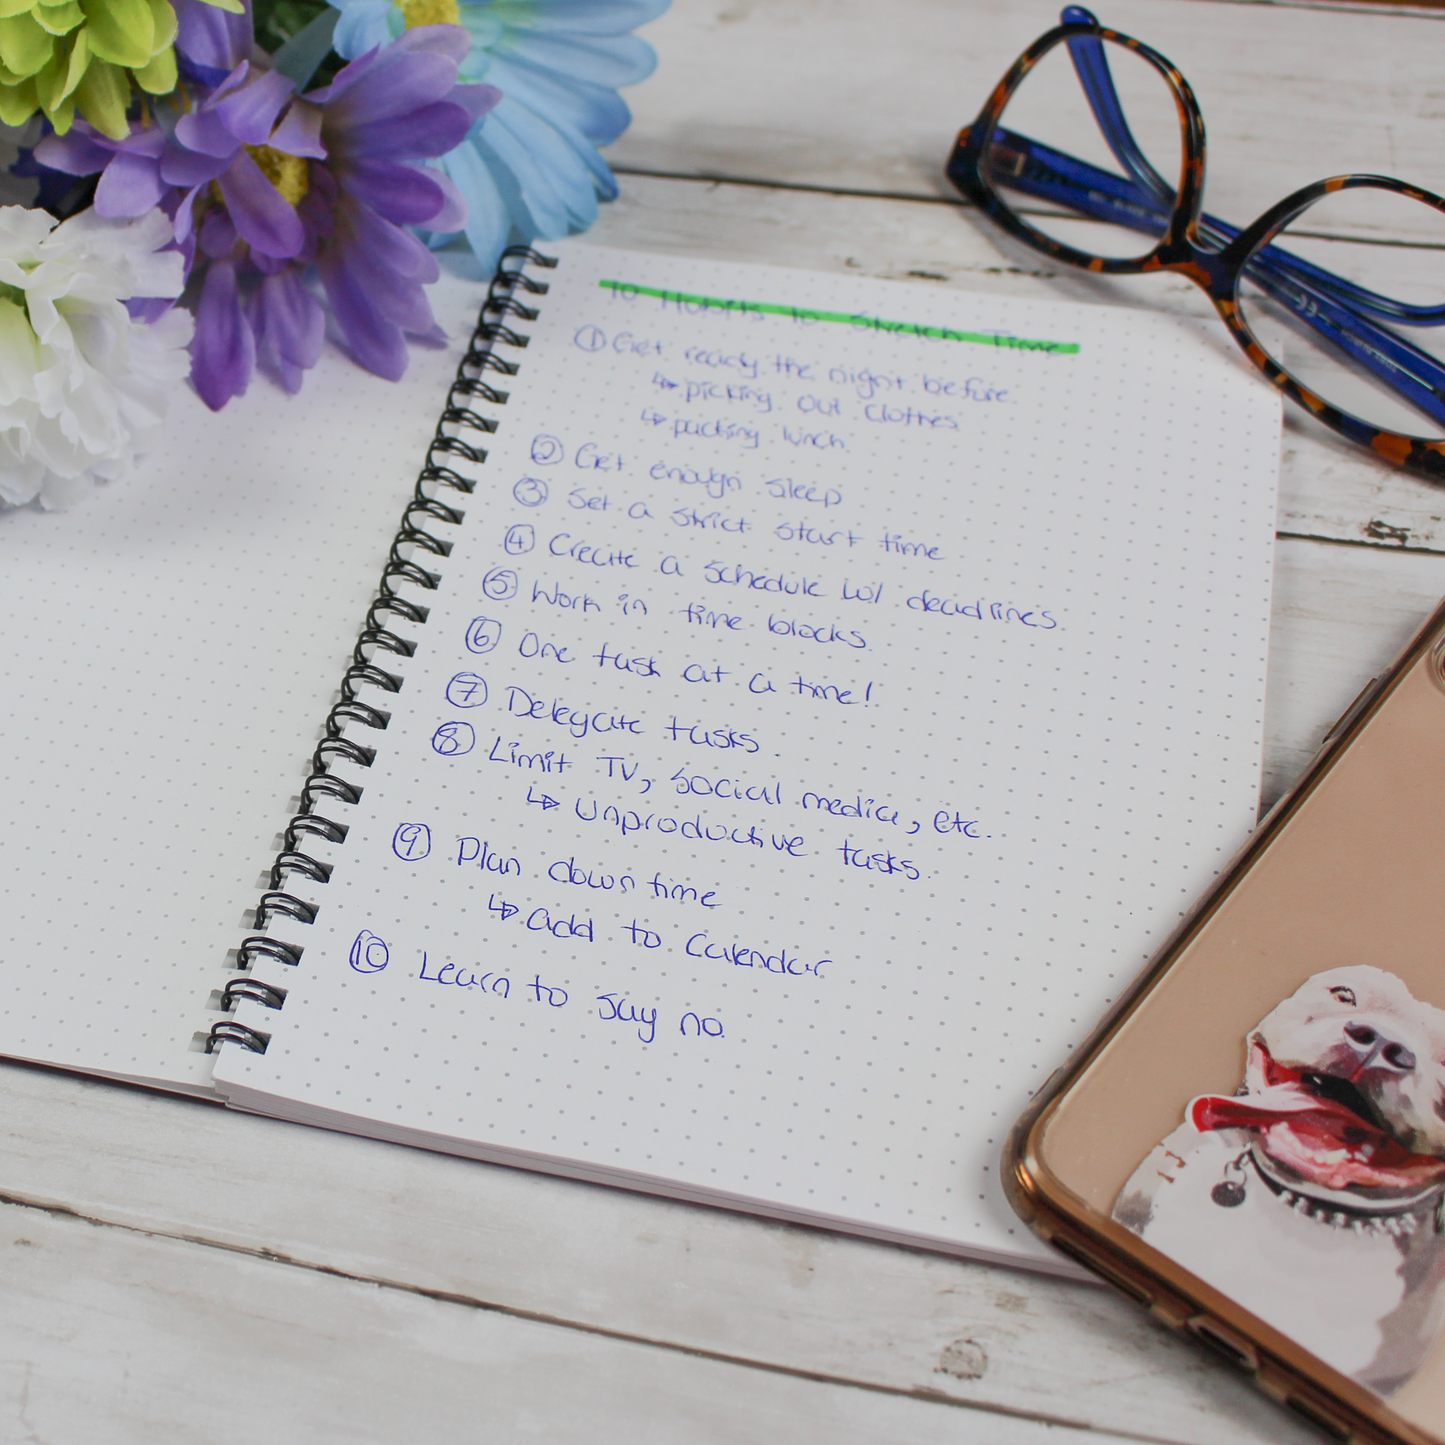 10 Habits to Stretch Time
① Get ready the night before.
↳ picking out clothes
↳ packing lunch.
② Get enough sleep
③ Set a strict start time
④ Create a schedule w/ deadlines.
⑤ Work in time blocks.
⑥ One task at a time!
⑦ Delegate tasks.
⑧ Limit TV, social media, etc.
↳ unproductive tasks.
⑨ Plan down time
↳ add to calendar
⑩ Learn to say no.
CE